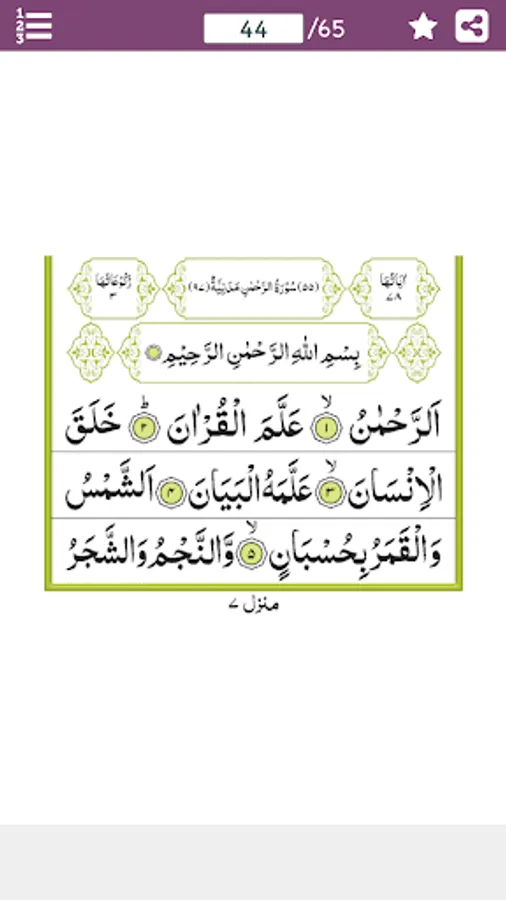 1
2
3
44 /65
اٰيَاتُهَا ٧٨
(٥٥) سُوْرَةُ الرَّحْمٰنِ مَدَنِيَّةٌ (٩٧)
رُكُوْعَاتُهَا ٣
بِسْمِ اللّٰهِ الرَّحْمٰنِ الرَّحِيْمِ
اَلرَّحْمٰنُ ۙ ١ عَلَّمَ الْقُرْاٰنَ ؕ ٢ خَلَقَ
الْاِنْسَانَ ۙ ٣ عَلَّمَهُ الْبَيَانَ ٤ اَلشَّمْسُ
وَالْقَمَرُ بِحُسْبَانٍ ۙ ٥ وَّالنَّجْمُ وَالشَّجَرُ
منزل ٧